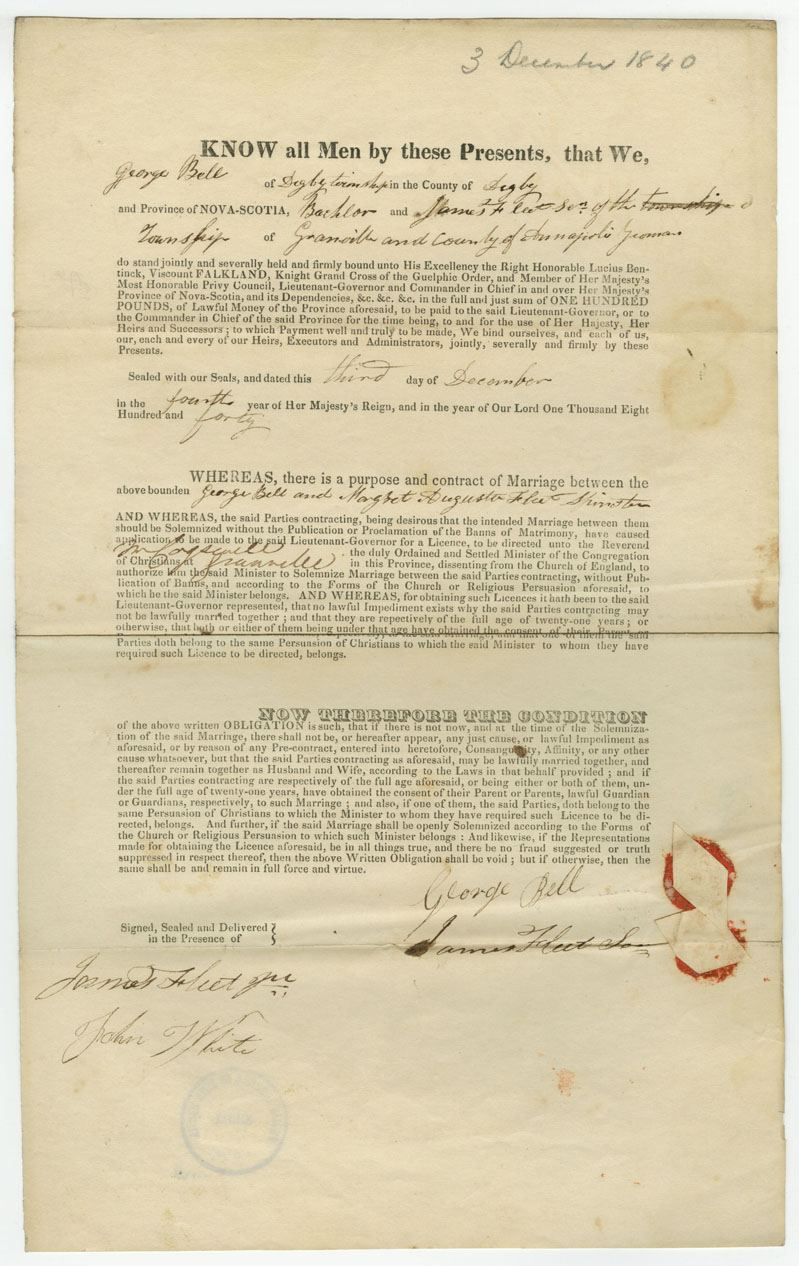 3 December 1840
KNOW all Men by these Presents, that We,
George Bell
of Digby township in the County of Digby
and Province of NOVA-SCOTIA, Bachlor and James Fleet Senr. of the township
Township of Granville and County of Annapolis Yeoman
do stand jointly and severally held and firmly bound unto His Excellency the Right Honorable Lucius Ben-
tinck, Viscount FALKLAND, Knight Grand Cross of the Guelphic Order, and Member of Her Majesty's
Most Honorable Privy Council, Lieutenant-Governor and Commander in Chief in and over Her Majesty's
Province of Nova-Scotia, and its Dependencies, &c. &c. &c. in the full and just sum of ONE HUNDRED
POUNDS, of Lawful Money of the Province aforesaid, to be paid to the said Lieutenant-Governor, or to
the Commander in Chief of the said Province for the time being, to and for the use of Her Hajesty, Her
Heirs and Successors; to which Payment well and truly to be made, We bind ourselves, and each of us,
our, each and every of our Heirs, Executors and Administrators, jointly, severally and firmly by these
Presents.
Sealed with our Seals, and dated this third day of December
in the fourth year of Her Majesty's Reign, and in the year of Our Lord One Thousand Eight
Hundred and forty
WHEREAS, there is a purpose and contract of Marriage between the
above bounden George Bell and Margret Augusta Fleet Spinster
AND WHEREAS, the said Parties contracting, being desirous that the intended Marriage between them
should be Solemnized without the Publication or Proclamation of the Banns of Matrimony, have caused
application to be made to the said Lieutenant-Governor for a Licence, to be directed unto the Reverend
Mr Cogswell the duly Ordained and Settled Minister of the Congregation
of Christians at Granville in this Province, dissenting from the Church of England, to
authorize him the said Minister to Solemnize Marriage between the said Parties contracting, without Pub-
lication of Banns, and according to the Forms of the Church or Religious Persuasion aforesaid, to
which he the said Minister belongs. AND WHEREAS, for obtaining such Licences it hath been to the said
Lieutenant-Governor represented, that no lawful Impediment exists why the said Parties contracting may
not be lawfully married together; and that they are repectively of the full age of twenty-one years; or
otherwise, that both or either of them being under that age have obtained the consent of their Parent or
Parties doth belong to the same Persuasion of Christians to which the said Minister to whom they have
required such Licence to be directed, belongs.
NOW THEREFORE THE CONDITION
of the above written OBLIGATION is such, that if there is not now, and at the time of the Solemniza-
tion of the said Marriage, there shall not be, or hereafter appear, any just cause, or lawful Impediment as
aforesaid, or by reason of any Pre-contract, entered into heretofore, Consanguinity, Affinity, or any other
cause whatsoever, but that the said Parties contracting as aforesaid, may be lawfully married together, and
thereafter remain together as Husband and Wife, according to the Laws in that behalf provided; and if
the said Parties contracting are respectively of the full age aforesaid, or being either or both of them, un-
der the full age of twenty-one years, have obtained the consent of their Parent or Parents, lawful Guardian
or Guardians, respectively, to such Marriage; and also, if one of them, the said Parties, doth belong to the
same Persuasion of Christians to which the Minister to whom they have required such Licence to be di-
rected, belongs. And further, if the said Marriage shall be openly Solemnized according to the Forms of
the Church or Religious Persuasion to which such Minister belongs: And likewise, if the Representations
made for obtaining the Licence aforesaid, be in all things true, and there be no fraud suggested or truth
suppressed in respect thereof, then the above Written Obligation shall be void; but if otherwise, then the
same shall be and remain in full force and virtue.
George Bell
Signed, Sealed and Delivered
in the Presence of
James Fleet Senr
James Fleet Jnr
John White